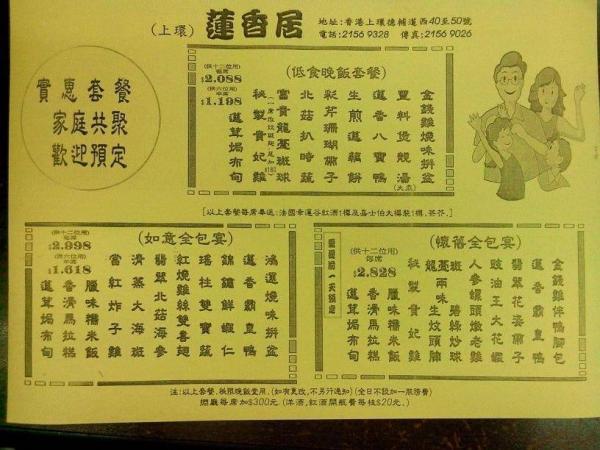 (上環) 蓮香居
地址:香港上環德輔道西40至50號
電話:2156 9328 傳真:2156 9026
實惠套餐
家庭共聚
歡迎預定
(抵食晚飯套餐)
(供十二位用)
每席
$2,088
(供六位用)
半席
$1,198
金錢燒味拼盆
豐料煲靚湯
(大煲)
蓮香八寶鴨
生煎蓮藕餅
彩芹珊瑚蘭子
北菇扒時蔬
富貴龍躉斑球
秘製貴妃雞
蓮茸焗布甸
(如意全包宴)
(供十二位用)
每席
$2,998
(供六位用)
半席
$1,618
鴻運燒味拼盆
蓮香霸皇鴨
錦鏽鮮蝦仁
瑤柱雙寶蔬
紅燒雞絲雙喜翅
翡翠北菇海參
清蒸大海斑
當紅炸子雞
臘味糯米飯
香滑馬拉糕
蓮茸焗布甸
(懷舊全包宴)
(供十二位用)
每席
$2,828
金錢雞伴鴨腳包
蓮香霸皇鴨
翡翠花姿蘭子
豉油王大花蝦
人參螺頭燉老雞
秘製貴妃雞
臘味糯米飯
香滑馬拉糕
蓮茸焗布甸
注:以上套餐,祗限晚飯堂用.(如有更改,不另行通知)(全日不設加一服務費)
閣廳每席加$300元 (洋酒,紅酒開瓶費每枝$20元.)